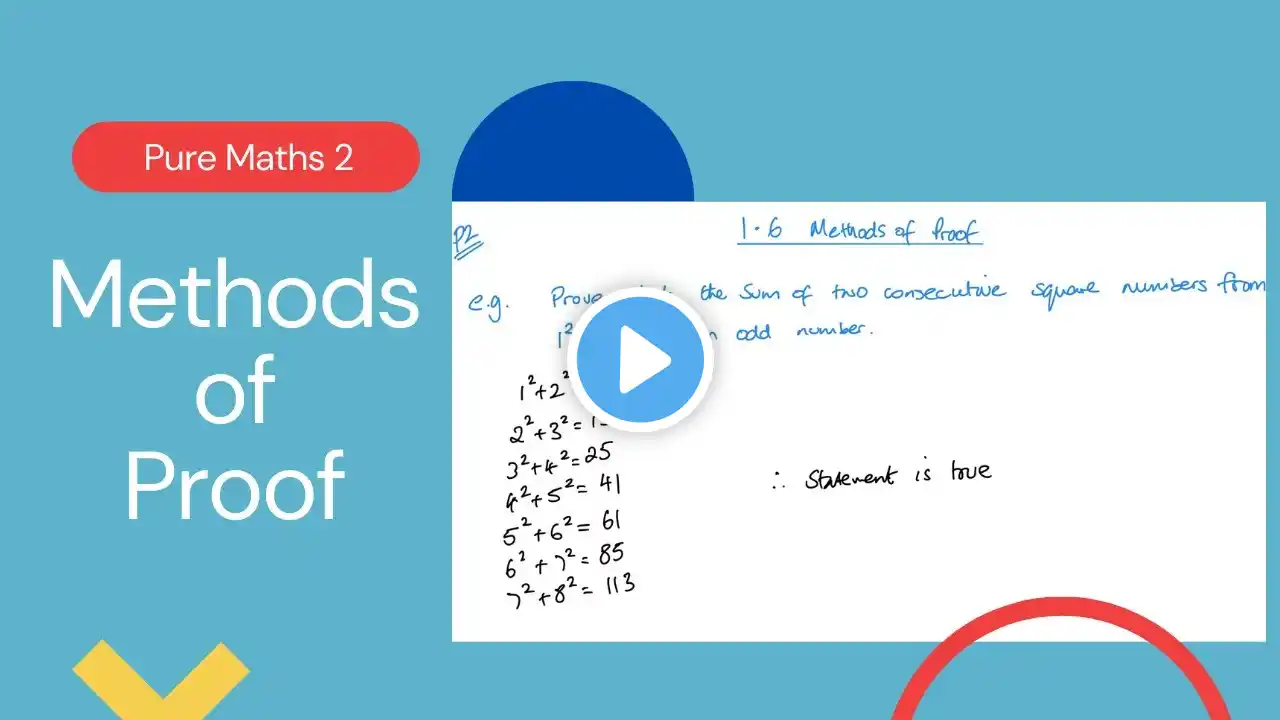 Pure Maths 2
Methods
of
Proof
P2
1.6 Methods of Proof
e.g. Prove the sum of two consecutive square numbers from
1² odd number.
1²+2²
2²+3²=
3²+4²=25
4²+5²=41
5²+6²=61
6²+7²=85
7²+8²=113
∴ Statement is true